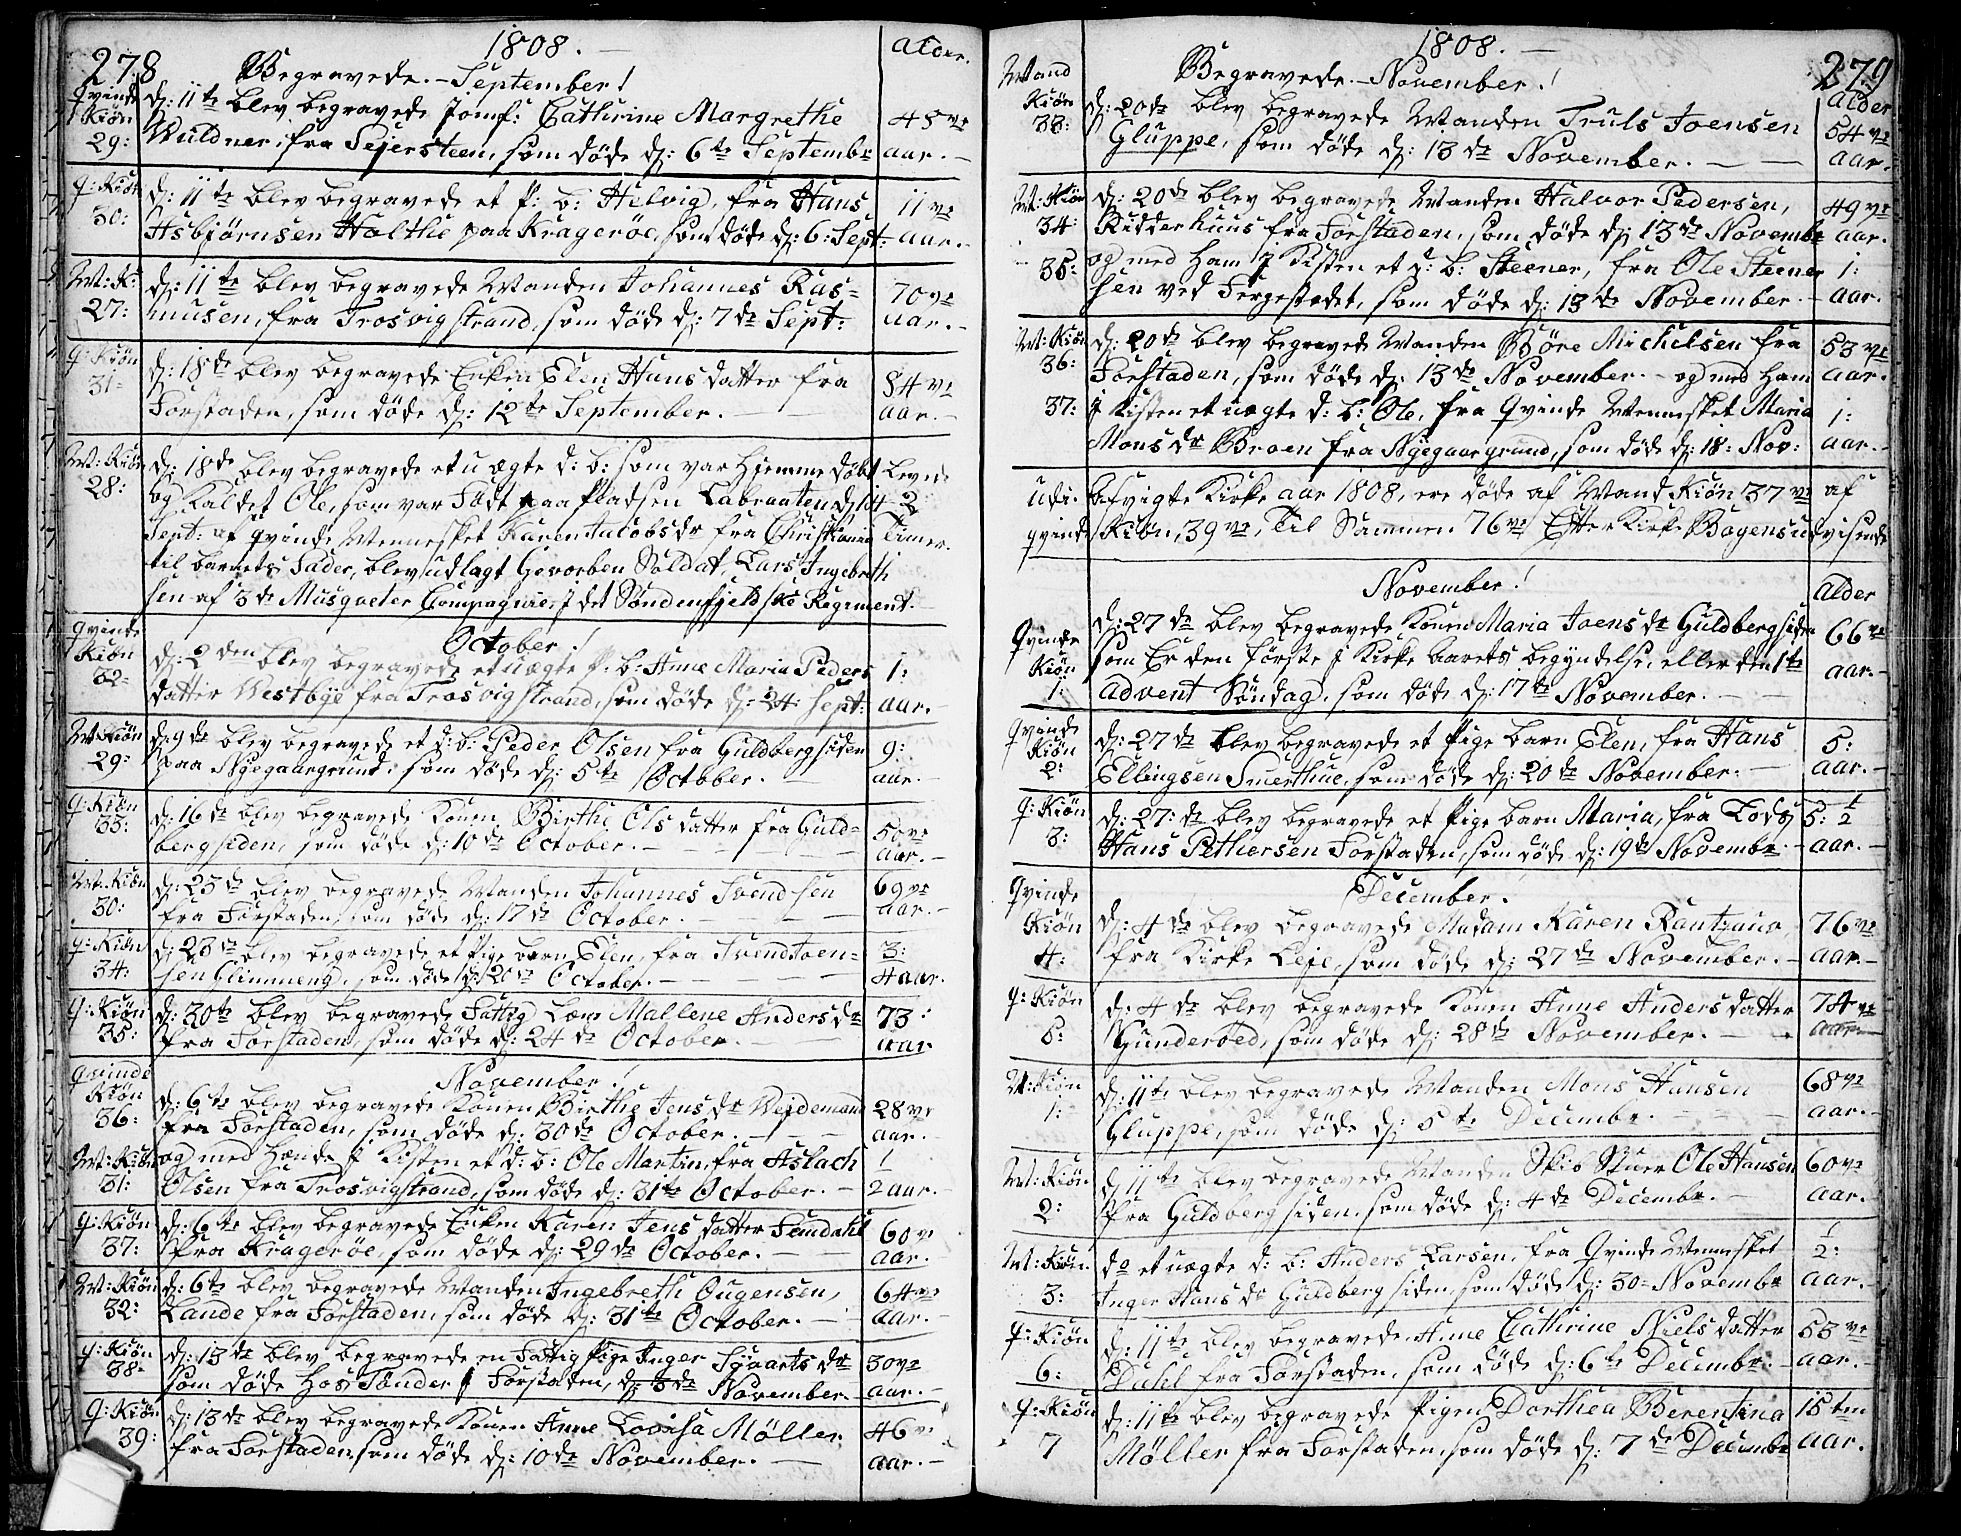 278
1808. —
alder.
Begravede. – September!
Qvinde Kiøn 29: d: 11te blev begravede Jomf: Cathrine Margrethe 45ve
Muldner, fra Sejersteen, som døde d: 6te Septembr aar. –
q: Kiøn 30: d: 11te blev begravede et p: b: Helvig, fra Hans 11ve
Asbjørnsen Holthe paa Kragerøe, som døde d: 6: Sept: aar. –
M: K: 27: d: 11te blev begravede Manden Johannes Ras= 70ve
musen, fra Trosvigstrand, som døde d: 7de Sept: aar. –
q: Kiøn 31= d: 18de blev begravede Enken Elen Hans datter fra 84ve
Forstaden, som døde d: 12te September. – aar. –
M: Kiøn 28: d: 18de blev begravede et uægte d: b: som var hjemme døbt Levede
og Kaldet Ole, som var født paa Pladsen Labraaten d: 14 2
Sept: af qvinde Mennesket Karen Jacobsdr fra Christiania Timer.
til barnets Fader, blev udlagt Gevorben Soldat, Lars Ingebreth
sen af 3de Musqueter Compagnie, i det Søndenfjeldske Regiment.
October!
qvinde Kiøn 32= d: 2den blev begravede et uægte p: b: Anne Maria Peders 1:
datter Westbye fra Trosvigstrand, som døde d: 24 Sept: aar. –
M: Kiøn 29: d: 9de blev begravede et d: b: Peder Olsen fra Guldbergsiden 9:
paa Nyegaargrund, som døde d: 5te October. aar. –
q: Kiøn 33: d: 16de blev begravede Konen Birthe Ols datter fra Guld= 50ve
bergsiden, som døde d: 10de October. – aar. –
M: Kiøn 30: d: 23de blev begravede Manden Johannes Svendsen 69ve
fra Forstaden, som døde d: 17de October. – aar. –
q: Kiøn 34: d: 23de blev begravede et Pige barn Elen, fra Svend Joen= 3:
sen Glimmeng, som døde d: 20de October. – 4 aar.
q: Kiøn 35: d: 30te blev begravede Fattig Lem Mallene Andersdr 73:
fra Forstaden, som døde d: 24de October. – aar
November!
qvinde Kiøn 36: d: 6te blev begravede Konen Birthe Jensdr Wejdemann 28ve
fra Forstaden, som døde d: 30de October. – aar.
M: Kiøn 31: og med hende i Kisten et d: b: Ole Martin, fra Aslach 1
Olsen fra Trosvigstrand, som døde d: 31te October. – 2 aar. –
q: Kiøn 37: d: 6te blev begravede Enken Karen Jens datter Femdahl 60ve
fra Kragerøe, som døde d: 29de October. – aar.
M: Kiøn 32: d: 6te blev begravede Manden Ingebreth Ougensen, 64ve
Lande fra Forstaden, som døde d: 31te October. – aar. –
q: Kiøn 38= d: 13de blev begravede en Fattig Pige Inger Svartsdr 30ve
som døde hos Tønder i Forstaden, d: 3de November. aar. –
q: Kiøn 39: d: 13de blev begravede Konen Anne Lovisa Møller 46ve
fra Forstaden, som døde d: 10de November. – aar. –
1808. —
279
Begravede. – November!
alder
Mand Kiøn 33: d: 20de blev begravede Manden Truls Joensen 54ve
Gluppe, som døde d: 13de November. – – aar.
M: Kiøn 34: d: 20de blev begravede Manden Halvor Pedersen, 49ve
Ridderhuus fra Forstaden, som døde d: 13de Novembr aar.
35: og med ham i Kisten et d: b: Steener, fra Ole Steener 1:
sen ved Fergestædet, som døde d: 13de November. – aar.
M: Kiøn 36: d: 20de blev begravede Manden Børe Michelsen fra 53ve
Forstaden, som døde d: 13de November. – og med ham aar.
37: i Kisten et uægte d: b: Ole, fra Qvinde Mennesket Maria 1:
Monsdr Broen fra Nyegaargrund, som døde d: 18= Nov: aar. –
Udi. bafvigte Kirke aar 1808, ere døde af Mand Kiøn 37ve af
qvinde Kiøn, 39ve, Til Sammen 76ve Efter Kirke Bogens udvisende
November!
alder
Qvinde Kiøn 1: d: 27de blev begravede Konen Maria Joensdr Guldbergsiden 66ve
som Er den første i Kirke aarets begyndelse, eller den 1te aar. –
advent Søndag, som døde d: 17de November. – –
Qvinde Kiøn 2: d: 27de blev begravede et Pige barn Elen, fra Hans 5:
Ellingsen Smerthue, som døde d: 20de November. – aar. –
q: Kiøn 3: d: 27: de blev begravede et Pige barn Maria, fra Lods 5: 1/2
Hans Pethersen Forstaden, som døde d: 19de Novembr. – aar. –
December!
Qvinde Kiøn 4: d: 4de blev begravede Madam Karen Rantzaus, 76ve
fra Kirke Leje, som døde d: 27de November. – aar. –
q: Kiøn 5: d: 4de blev begravede Konen Anne Anders datter 74ve
Gunderøed, som døde d: 28de November. – aar. –
M: Kiøn 1: d: 11te blev begravede Manden Mons Hansen 68ve
Gluppe, som døde d: 5te Decembr. aar. –
M: Kiøn 2: d: 11te blev begravede Manden Skib Stuer Ole Hansen 60ve
fra Guldbergsiden, som døde d: 4de Decembr. – aar. –
M: Kiøn 3: do et uægte d: b: Anders Larsen, fra Qvinde Mennesket 1/2:
Inger Hansdr Guldbergsiden, som døde d: 30= Novembr aar. –
q: Kiøn 6: d: 11te blev begravede Anne Cathrine Niels datter 53ve
Dahl fra Forstaden, som døde d: 6te Decembr. – aar. –
q: Kiøn 7 d: 11te blev begravede Pigen Dorthea Berentina 15ten
Møller fra Forstaden, som døde d: 7de Decembr aar.